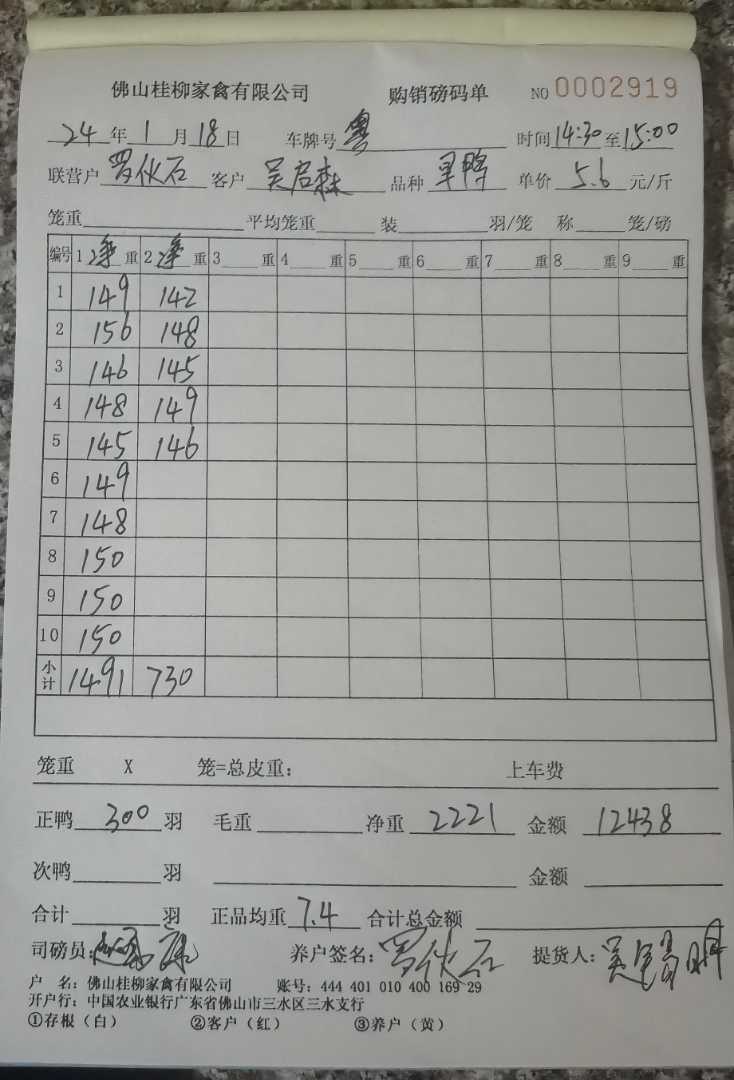 佛山桂柳家禽有限公司 购销磅码单 NO 0002919
24年1月18日 车牌号 粤 时间14:30至15:00
联营户 罗伙石 客户 吴启森 品种 旱鸭 单价 5.6 元/斤
笼重 平均笼重 装 羽/笼 称 笼/磅
编号 1 净 重 2 净 重 3 重 4 重 5 重 6 重 7 重 8 重 9 重
1 149 142
2 156 148
3 146 145
4 148 149
5 145 146
6 149
7 148
8 150
9 150
10 150
小计 1491 730
笼重 X 笼=总皮重: 上车费
正鸭 300 羽 毛重 净重 2221 金额 12438
次鸭 羽 金额
合计 羽 正品均重 7.4 合计总金额
司磅员: 养户签名: 罗伙石 提货人: 吴
户 名: 佛山桂柳家禽有限公司 账号: 444 401 010 400 169 29
开户行: 中国农业银行广东省佛山市三水区三水支行
①存根(白) ②客户(红) ③养户(黄)